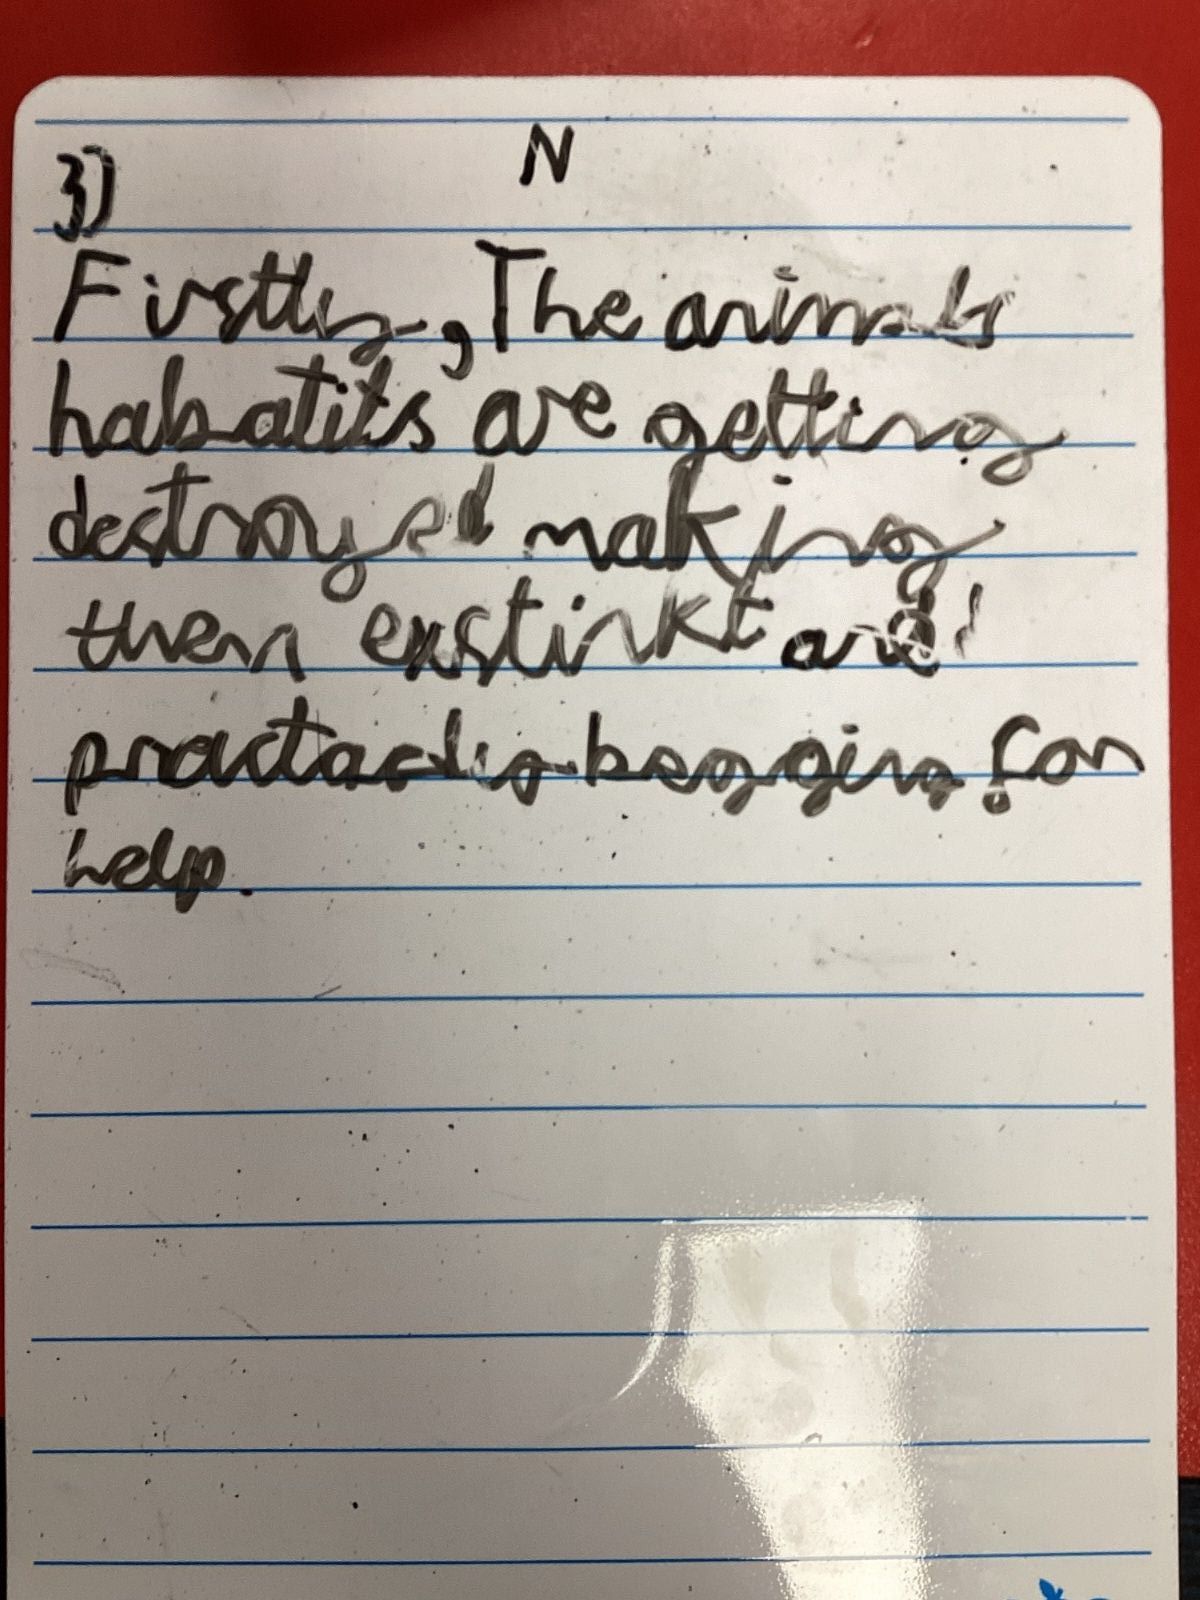 3) N
Firstly, The animals
habatits are getting
destroyed making
them exstinkt and
practacly begging for
help.